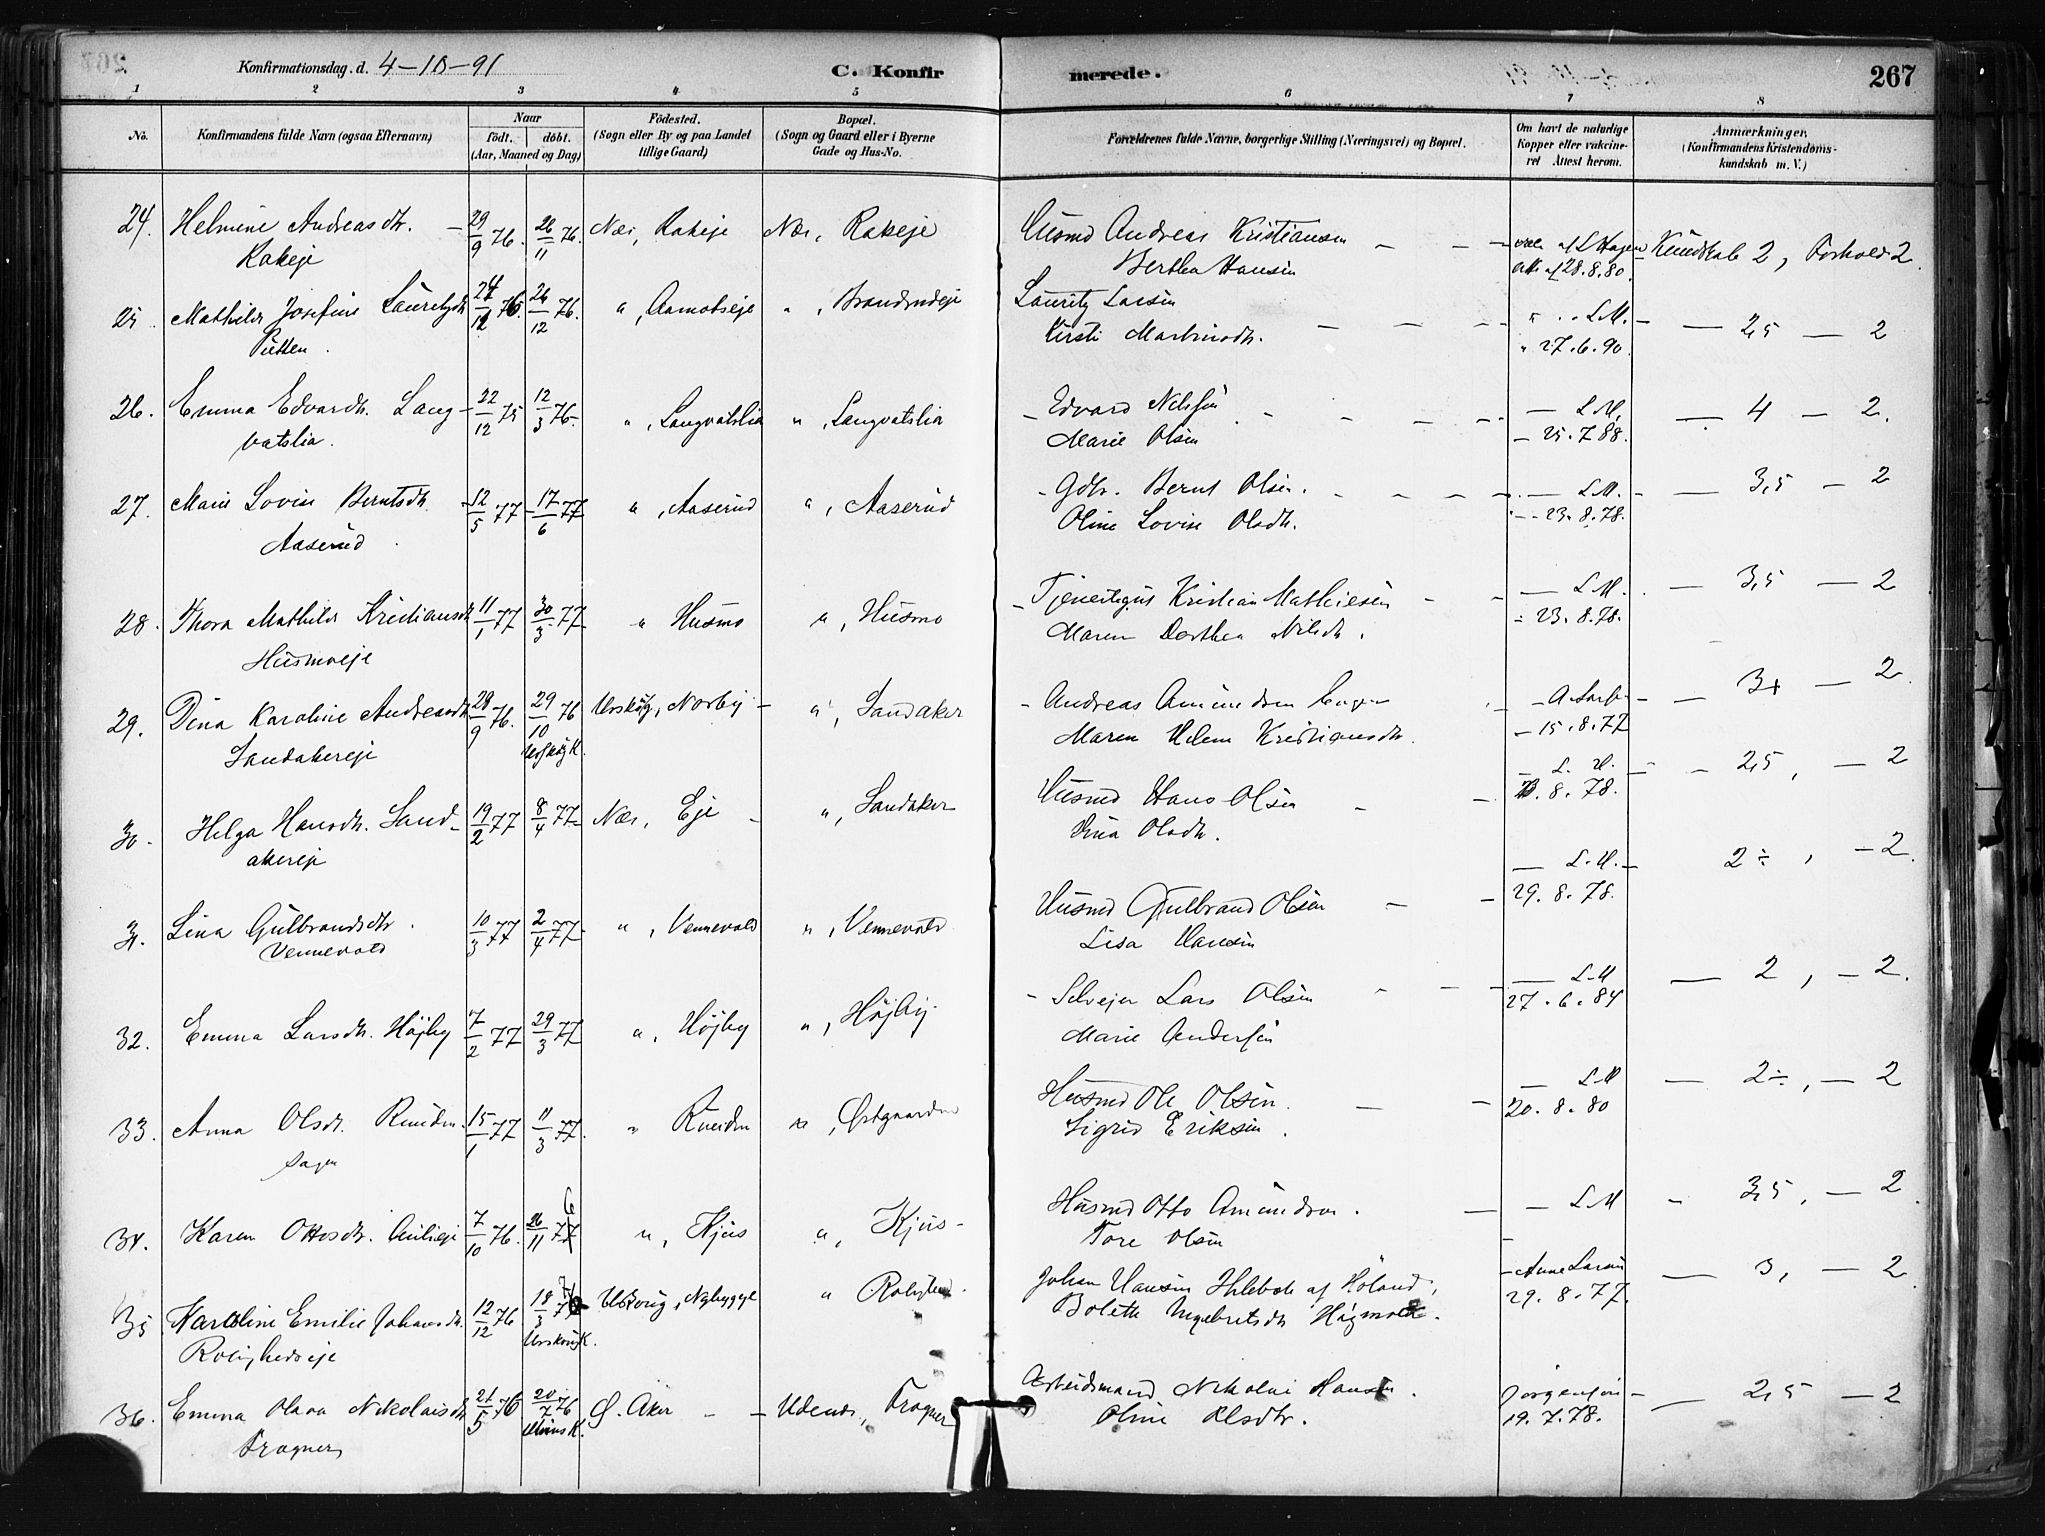 Konfirmationsdag. d. 4-10-91 C. Konfir merede. 267
1 2 3 4 5 6 7 8
No. Konfirmandens fulde Navn (ogsaa Efternavn) Naar födt. döbt. (Aar, Maaned og Dag) Födested. (Sogn eller By og paa Landet tillige Gaard) Bopæl. (Sogn og Gaard eller i Byerne Gade og Hus-No. Forældrenes fulde Navne, borgerlige Stilling (Næringsvei) og Bopæl. Om havt de naturlige Kopper eller vaccineret Attest herom. Anmærkninger. (Konfirmandens Kristendomskundskab m. V.)
24. Helmine Andreasdtr. 29/9 76. 26/11 76. Næs, Rakeje Næs, Rakeje Husmd Andreas Kristiansen af L Hagen Kundskab 2, Forhold 2
Rakeje Berthea Hansen att af 28.8.80.
25. Mathilde Josefine Lauritzdtr 24/12 76. 26/12 76. " , Aamotseje " , Lauritz Larsen L.M. 2,5 — 2
Putten. Kirsti Martinsdtr. " 27.6.90.
26. Emma Edvardtr. Lang- 22/12 75 12/3 76. " , Langvatslia " , Langvatslia Edvard Nilssen — L.M. — 4 — 2.
vatslia. Marie Olsen — 25.7.88.
27. Marie Lovise Berntsdtr. 12/5 77 17/6 77 " , Aaserud " , Aaserud Gdbr. Bernt Olsen. — L.M. — 3,5 — 2
Aaserud Oline Lovise Olsdtr. — 23.8.78.
28. Thora Mathilde Kristiansdtr 11/1 77 30/3 77 " Husmo " , Husmo Kristian Mathiesen — L.M. — 3,5 — 2
Husmoeje Maren Dorthea Nilsdtr. 23.8.78.
29. Dina Karoline Andreasdtr 28/9 76. 29/10 76 Urskog, Norby " , Sandaker Andreas Amundsen — 3+ — 2
Sandakereje Urskog K. Maren Helene Kristiansdtr. — 15.8.77
30. Helga Hansdtr. Sand- 19/2 77 8/4 77 Næs, Eje " , Sandaker Husmd Hans Olsen — L. M. — 2,5, — 2
akereje Dina Olsdtr. 8.78.
31. Lina Gulbrandsdtr. 10/3 77 2/4 77 " , Vennevold " , Vennevold Husmd Gulbrand Olsen — L.M. 2÷, — 2.
Vennevold Lisa Hansen 29.8.78.
32. Emma Larsdtr. Højby 7/2 77 29/3 77 " , Højby " , Højby Selvejer Lars Olsen — L.M — 2, — 2.
Marie Anderssen 27.6.84
33. Anna Olsdt. Ruuden 15/1 77 11/3 77. " Ruuden " , Østgaarden Husmd Ole Olsen — L.M — 2÷, — 2
Sagen Sigrid Eriksen. 20.8.80
34. Karen Ottosdtr. 7/10 76. 26/11 77 6 " , Kjus " , Kjus Husmd Otto Amundsen. — L.M 3,5, — 2
Tore Olsen
35 Karoline Emilie Johansdtr. 12/12 76 18/3 77 Urskoug, Nybygget " Johan Hansen af Høland, — Anne Larsen — 3, — 2
Rolighedseje Urskoug K. Bolette Ingebretsdtr 29.8.77.
36. Emma Olava Nikolaisdtr 21/5 76 20/7 76 Ø. Aker Udenes, Frogner Arbeidsmand Nikolai Hansen. Jørgensen — 2,5 — 2
Frogner Oline Olsdtr. 19.7.78.